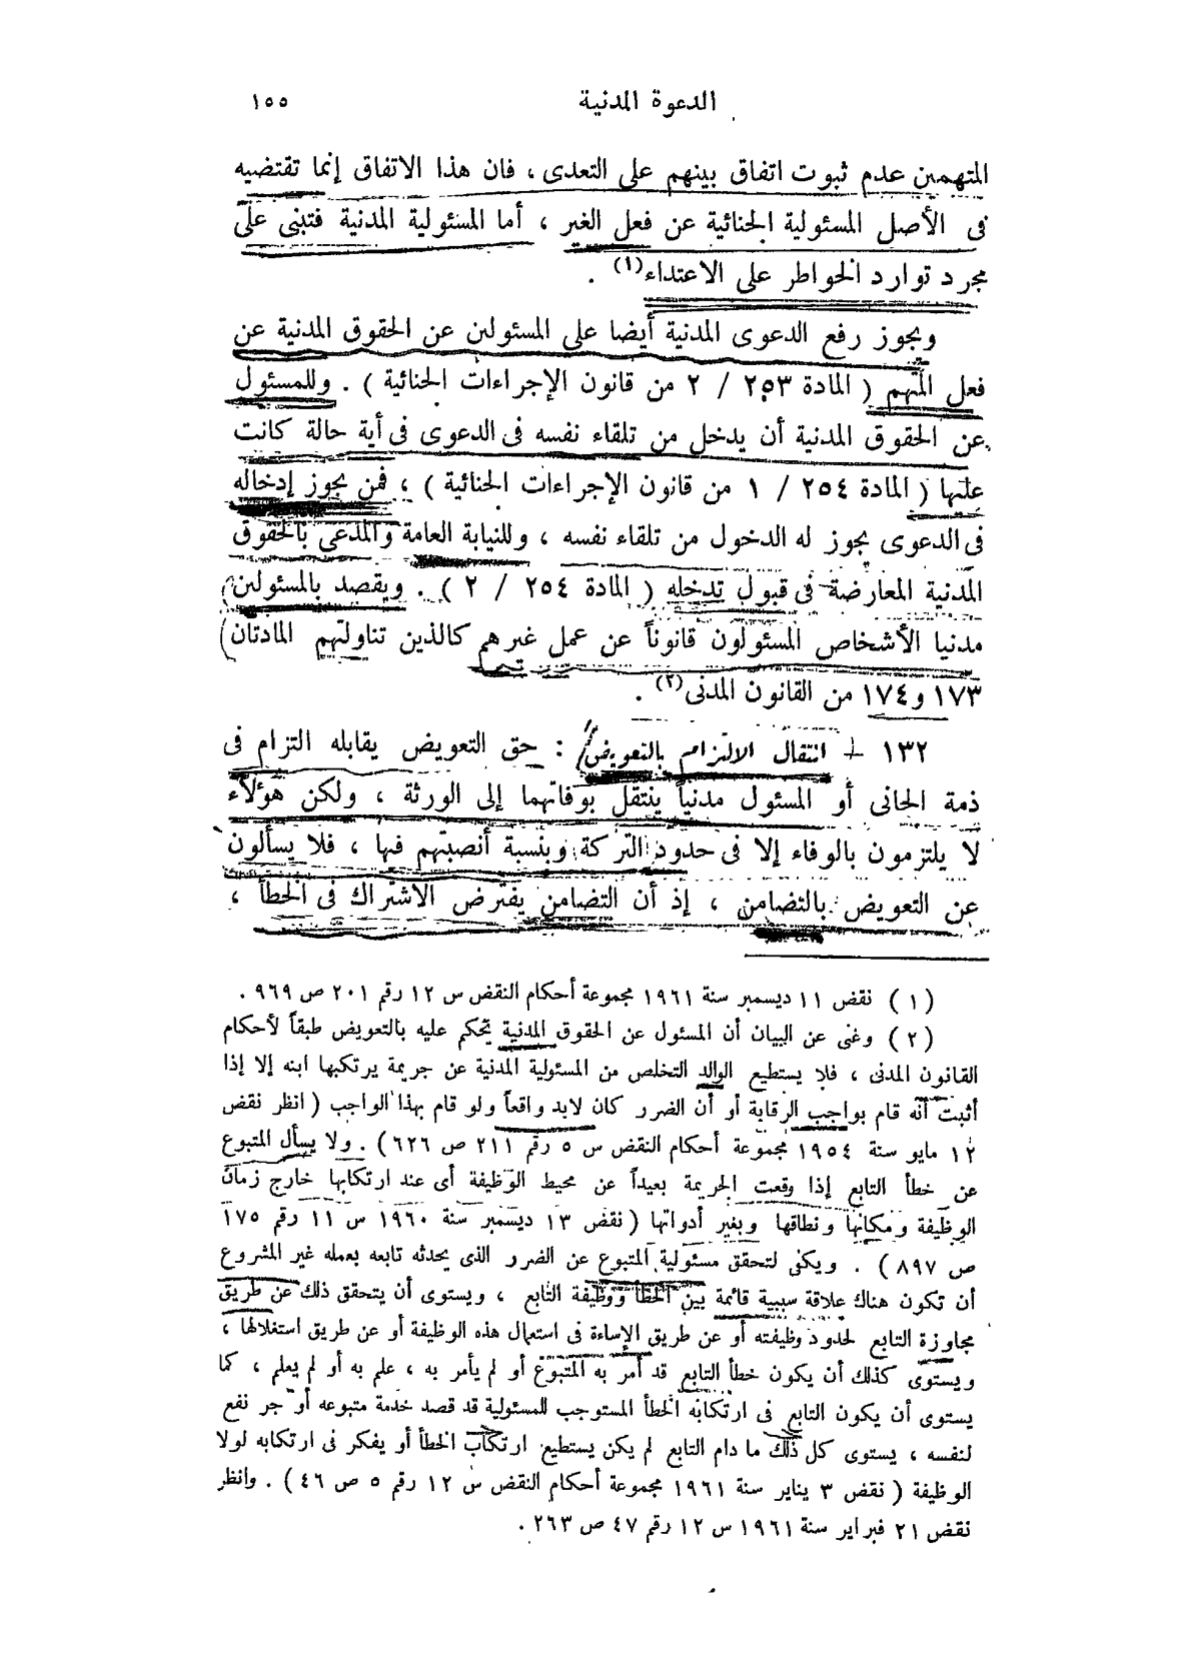 الدعوة المدنية ١٥٥
المتهمين عدم ثبوت اتفاق بينهم على التعدى ، فان هذا الاتفاق إنما تقتضيه
فى الأصل المسئولية الجنائية عن فعل الغير ، أما المسئولية المدنية فتبنى على
مجرد توارد الخواطر على الاعتداء(١) .
ويجوز رفع الدعوى المدنية أيضا على المسئولين عن الحقوق المدنية عن
فعل المتهم ( المادة ٢٥٣ / ٢ من قانون الإجراءات الجنائية ) . وللمسئول
عن الحقوق المدنية أن يدخل من تلقاء نفسه فى الدعوى فى أية حالة كانت
عليها ( المادة ٢٥٤ / ١ من قانون الإجراءات الجنائية ) ، فمن يجوز إدخاله
فى الدعوى يجوز له الدخول من تلقاء نفسه ، وللنيابة العامة والمدعى بالحقوق
المدنية المعارضة فى قبول تدخله ( المادة ٢٥٤ / ٢ ) . ويقصد بالمسئولين
مدنيا الأشخاص المسئولون قانوناً عن عمل غيرهم كالذين تناولتهم المادتان
١٧٣ و ١٧٤ من القانون المدنى(٢) .
١٣٢ – انتقال الالتزام بالتعويض : حق التعويض يقابله التزام فى
ذمة الجانى أو المسئول مدنياً ينتقل بوفاتهما إلى الورثة ، ولكن هؤلاء
لا يلتزمون بالوفاء إلا فى حدود التركة وبنسبة أنصبتهم فيها ، فلا يسألون
عن التعويض بالتضامن ، إذ أن التضامن يفترض الاشتراك فى الخطأ ،
( ١ ) نقض ١١ ديسمبر سنة ١٩٦١ مجموعة أحكام النقض س ١٢ رقم ٢٠١ ص ٩٦٩ .
( ٢ ) وغنى عن البيان أن المسئول عن الحقوق المدنية يحكم عليه بالتعويض طبقاً لأحكام
القانون المدنى ، فلا يستطيع الوالد التخلص من المسئولية المدنية عن جريمة يرتكبها ابنه إلا إذا
أثبت أنه قام بواجب الرقابة أو أن الضرر كان لابد واقعاً ولو قام بهذا الواجب ( انظر نقض
١٢ مايو سنة ١٩٥٤ مجموعة أحكام النقض س ٥ رقم ٢١١ ص ٦٢٦ ) . ولا يسأل المتبوع
عن خطأ التابع إذا وقعت الجريمة بعيداً عن محيط الوظيفة أى عند ارتكابها خارج زمان
الوظيفة ومكانها ونطاقها وبغير أدواتها ( نقض ١٣ ديسمبر سنة ١٩٦٠ س ١١ رقم ١٧٥
ص ٨٩٧ ) . ويكفى لتحقق مسئولية المتبوع عن الضرر الذى يحدثه تابعه بعمله غير المشروع
أن تكون هناك علاقة سببية قائمة بين الخطأ ووظيفة التابع ، ويستوى أن يتحقق ذلك عن طريق
مجاوزة التابع لحدود وظيفته أو عن طريق الإساءة فى استعمال هذه الوظيفة أو عن طريق استغلالها ،
ويستوى كذلك أن يكون خطأ التابع قد أمر به المتبوع أو لم يأمر به ، علم به أو لم يعلم ، كما
يستوى أن يكون التابع فى ارتكابه الخطأ المستوجب للمسئولية قد قصد خدمة متبوعه أو جر نفع
لنفسه ، يستوى كل ذلك ما دام التابع لم يكن يستطيع ارتكاب الخطأ أو يفكر فى ارتكابه لولا
الوظيفة ( نقض ٣ يناير سنة ١٩٦١ مجموعة أحكام النقض س ١٢ رقم ٥ ص ٤٦ ) . وانظر
نقض ٢١ فبراير سنة ١٩٦١ س ١٢ رقم ٤٧ ص ٢٦٣ .